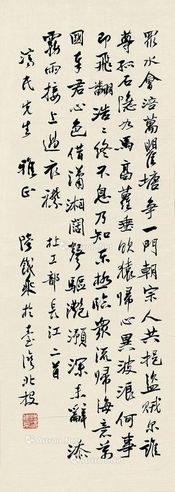 眾水會涪萬瞿塘爭一門朝宗人共挹盜賊尔誰
尊孤石隱如馬高蘿垂飲猿歸心異波浪何事
即飛翻浩浩終不息乃知東極臨眾流歸海意萬
國奉君心色借瀟湘闊聲驅灩澦深未辭添
霧雨接上過衣襟 杜工部長江二首
民先生 雅正 陸鐵乘於臺灣北投